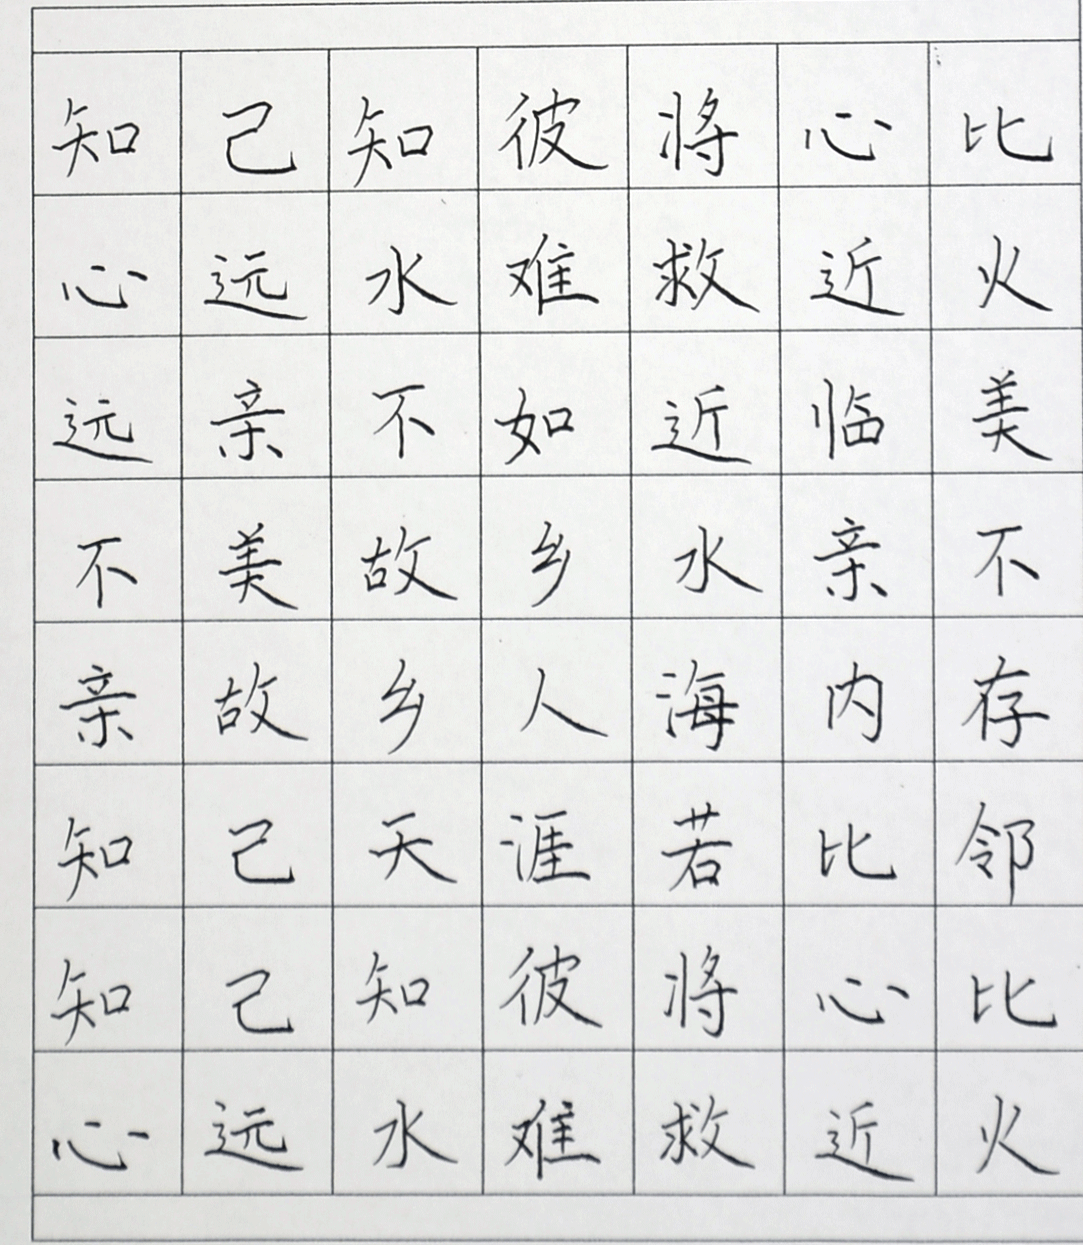 知己知彼将心比
心远水难救近火
远亲不如近临美
不美故乡水亲不
亲故乡人海内存
知己天涯若比邻
知己知彼将心比
心远水难救近火